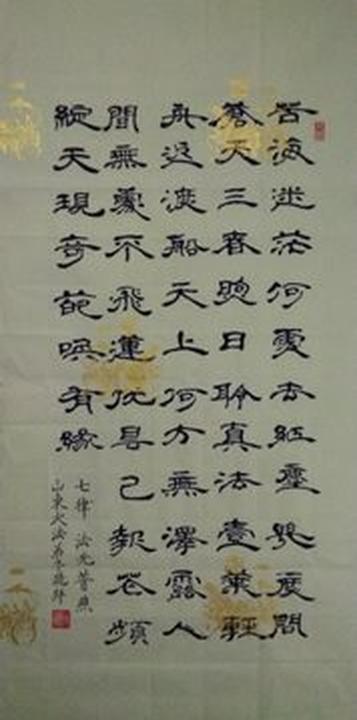 苦海迷茫何處去紅塵幾度問
蒼天三春煦日聆真法壹葉輕
舟渡船天上何方無澤露人
間無處不飛蓮优昙已報花頻
綻天現奇葩喚有緣
七律 法光普照
山東大法弟子敬拜